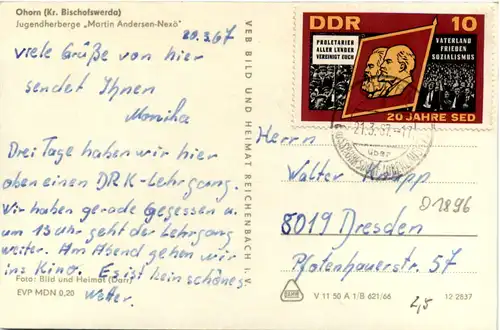 Ohorn (Kr. Bischofswerda)
Jugendherberge „Martin Andersen-Nexö"
20.3.67
Viele Grüße von hier
sendet Ihnen
Monika
Drei Tage haben wir hier
oben einen DRK-Lehrgang.
Wir haben gerade Gegessen u.
um 13 Uhr geht der Lehrgang
weiter. Am Abend gehen wir
ins Kino. Es ist kein schönes
Wetter.
Foto: Bild und Heimat (Darr)
EVP MDN 0,20
VEB BILD UND HEIMAT REICHENBACH i. V.
DDR 10
PROLETARIER
ALLER LÄNDER
VEREINIGT EUCH
VATERLAND
FRIEDEN
SOZIALISMUS
20 JAHRE SED
21.3.67.-17
über
Herrn
Walter
D1896
8019 Dresden
Pfotenhauerstr. 57
V 11 50 A 1/B 621/66
12 2837